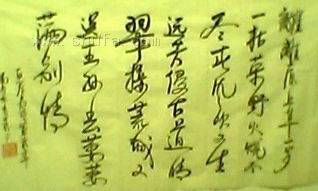 離離原上草一歲
一枯榮野火燒不
盡春風吹又生
遠芳侵古道晴
翠接荒城又
送王孫去萋萋
滿別情